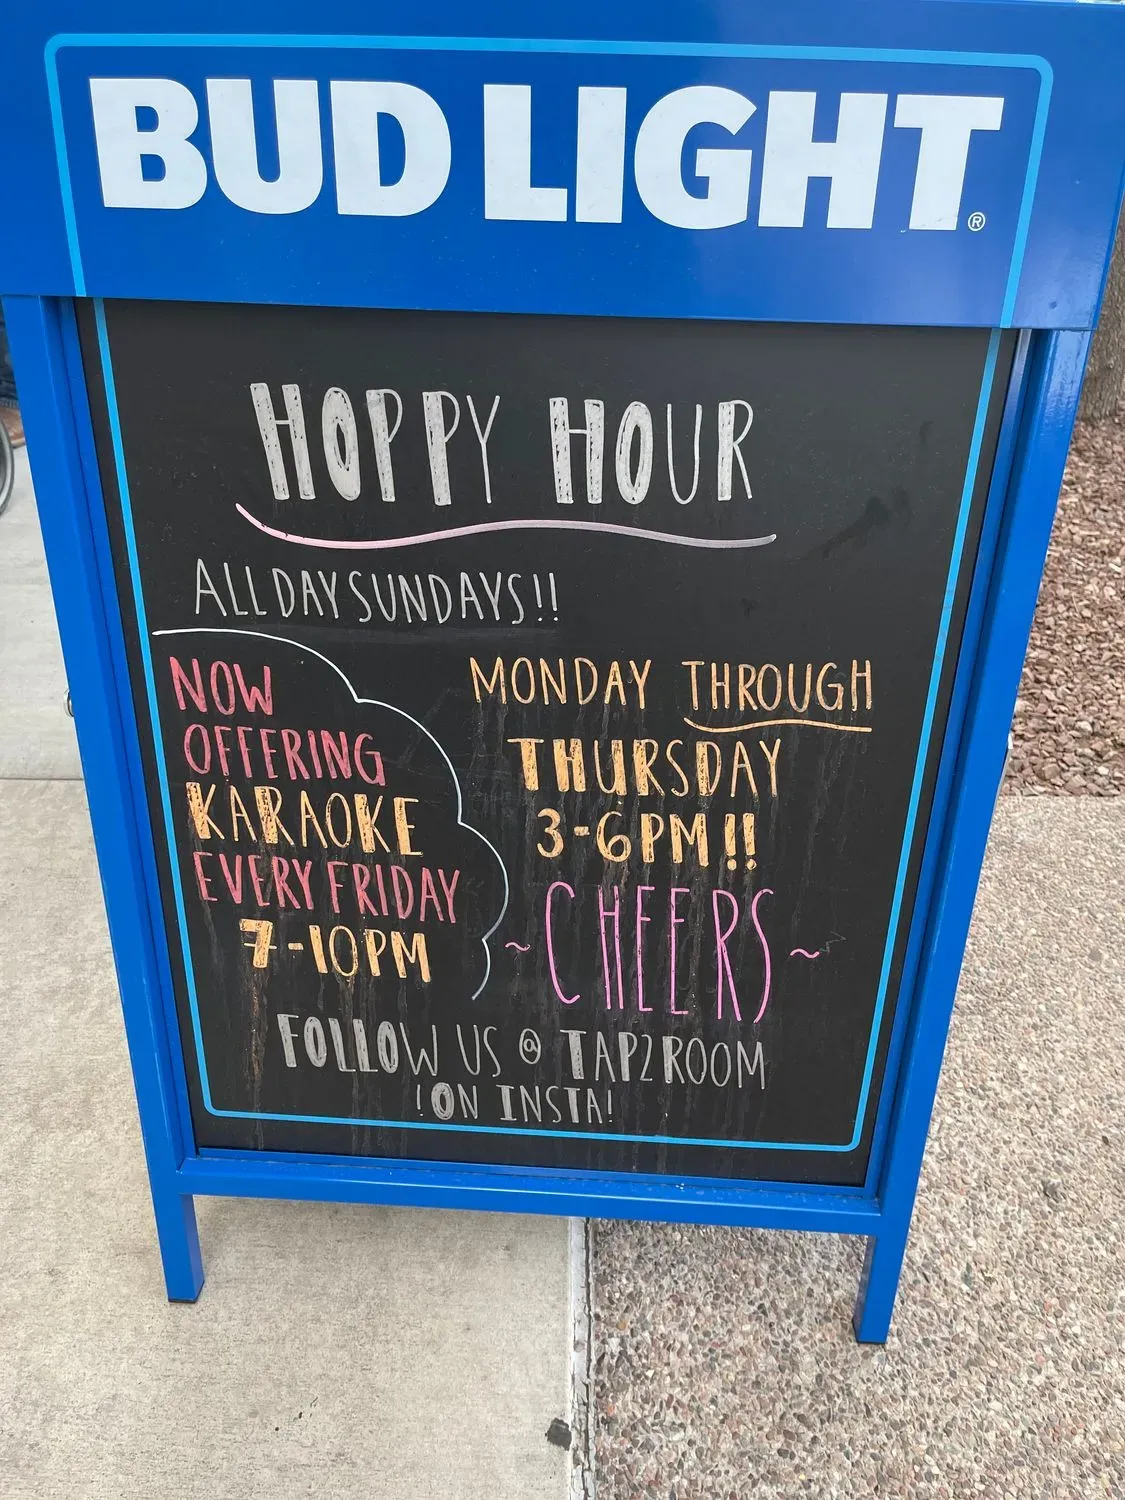 BUD LIGHT®
HOPPY HOUR
ALL DAY SUNDAYS!!
NOW
OFFERING
KARAOKE
EVERY FRIDAY
7-10PM
MONDAY THROUGH
THURSDAY
3-6PM!!
~CHEERS~
FOLLOW US @ TAP2ROOM
!ON INSTA!